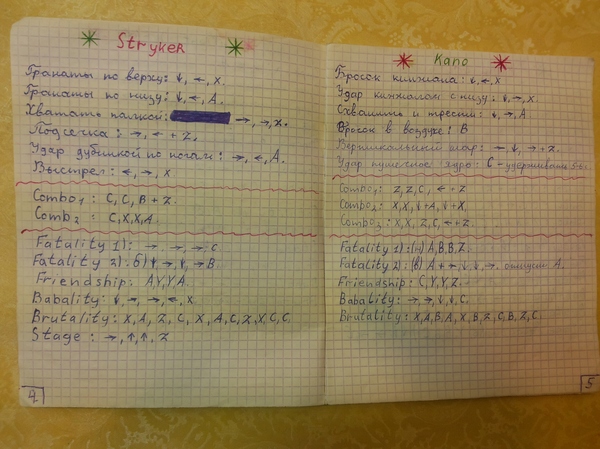 Stryker
Гранаты по верху: ↓, ←, X.
Гранаты по низу: ↓, ←, A.
Хватать палкой: →, →, X.
Подсечка: →, ← + Z.
Удар дубинкой по ногам: →, ←, A.
Выстрел: ←, →, X
Combo1: C, C, B + Z.
Comb2: C, X, X, A.
Fatality 1): → → → C
Fatality 2): б) ↓, →, ↓, → B
Friendship: A, Y, Y, A.
Babality: ↓, →, →, ←, X.
Brutality: X, A, Z, C, X, A, C, Z, X, C, C.
Stage: →, ↑, ↑, Z
4
Kano
Бросок кинжала: ↓, ←, X.
Удар кинжалом с низу: ↓, →, X.
Схватить и трести: ↓, →, A
Бросок в воздухе: B
Вертикальный шар: →, ↓, → + Z.
Удар пушечное ядро: C - удерживать
Combo1: Z, Z, C, ← + Z
Combo2: X, X, ↓ + A, ↓ + X.
Combo3: X, X, Z, C, ← + Z.
Fatality 1): (н) A, B, B, Z.
Fatality 2): (в) A + →, ↓, ↓, →. отпусти A.
Friendship: C, Y, Y, Z.
Babality: →, →, ↓, ↓, C.
Brutality: X, A, B, A, X, B, Z, C, B, Z, C
5